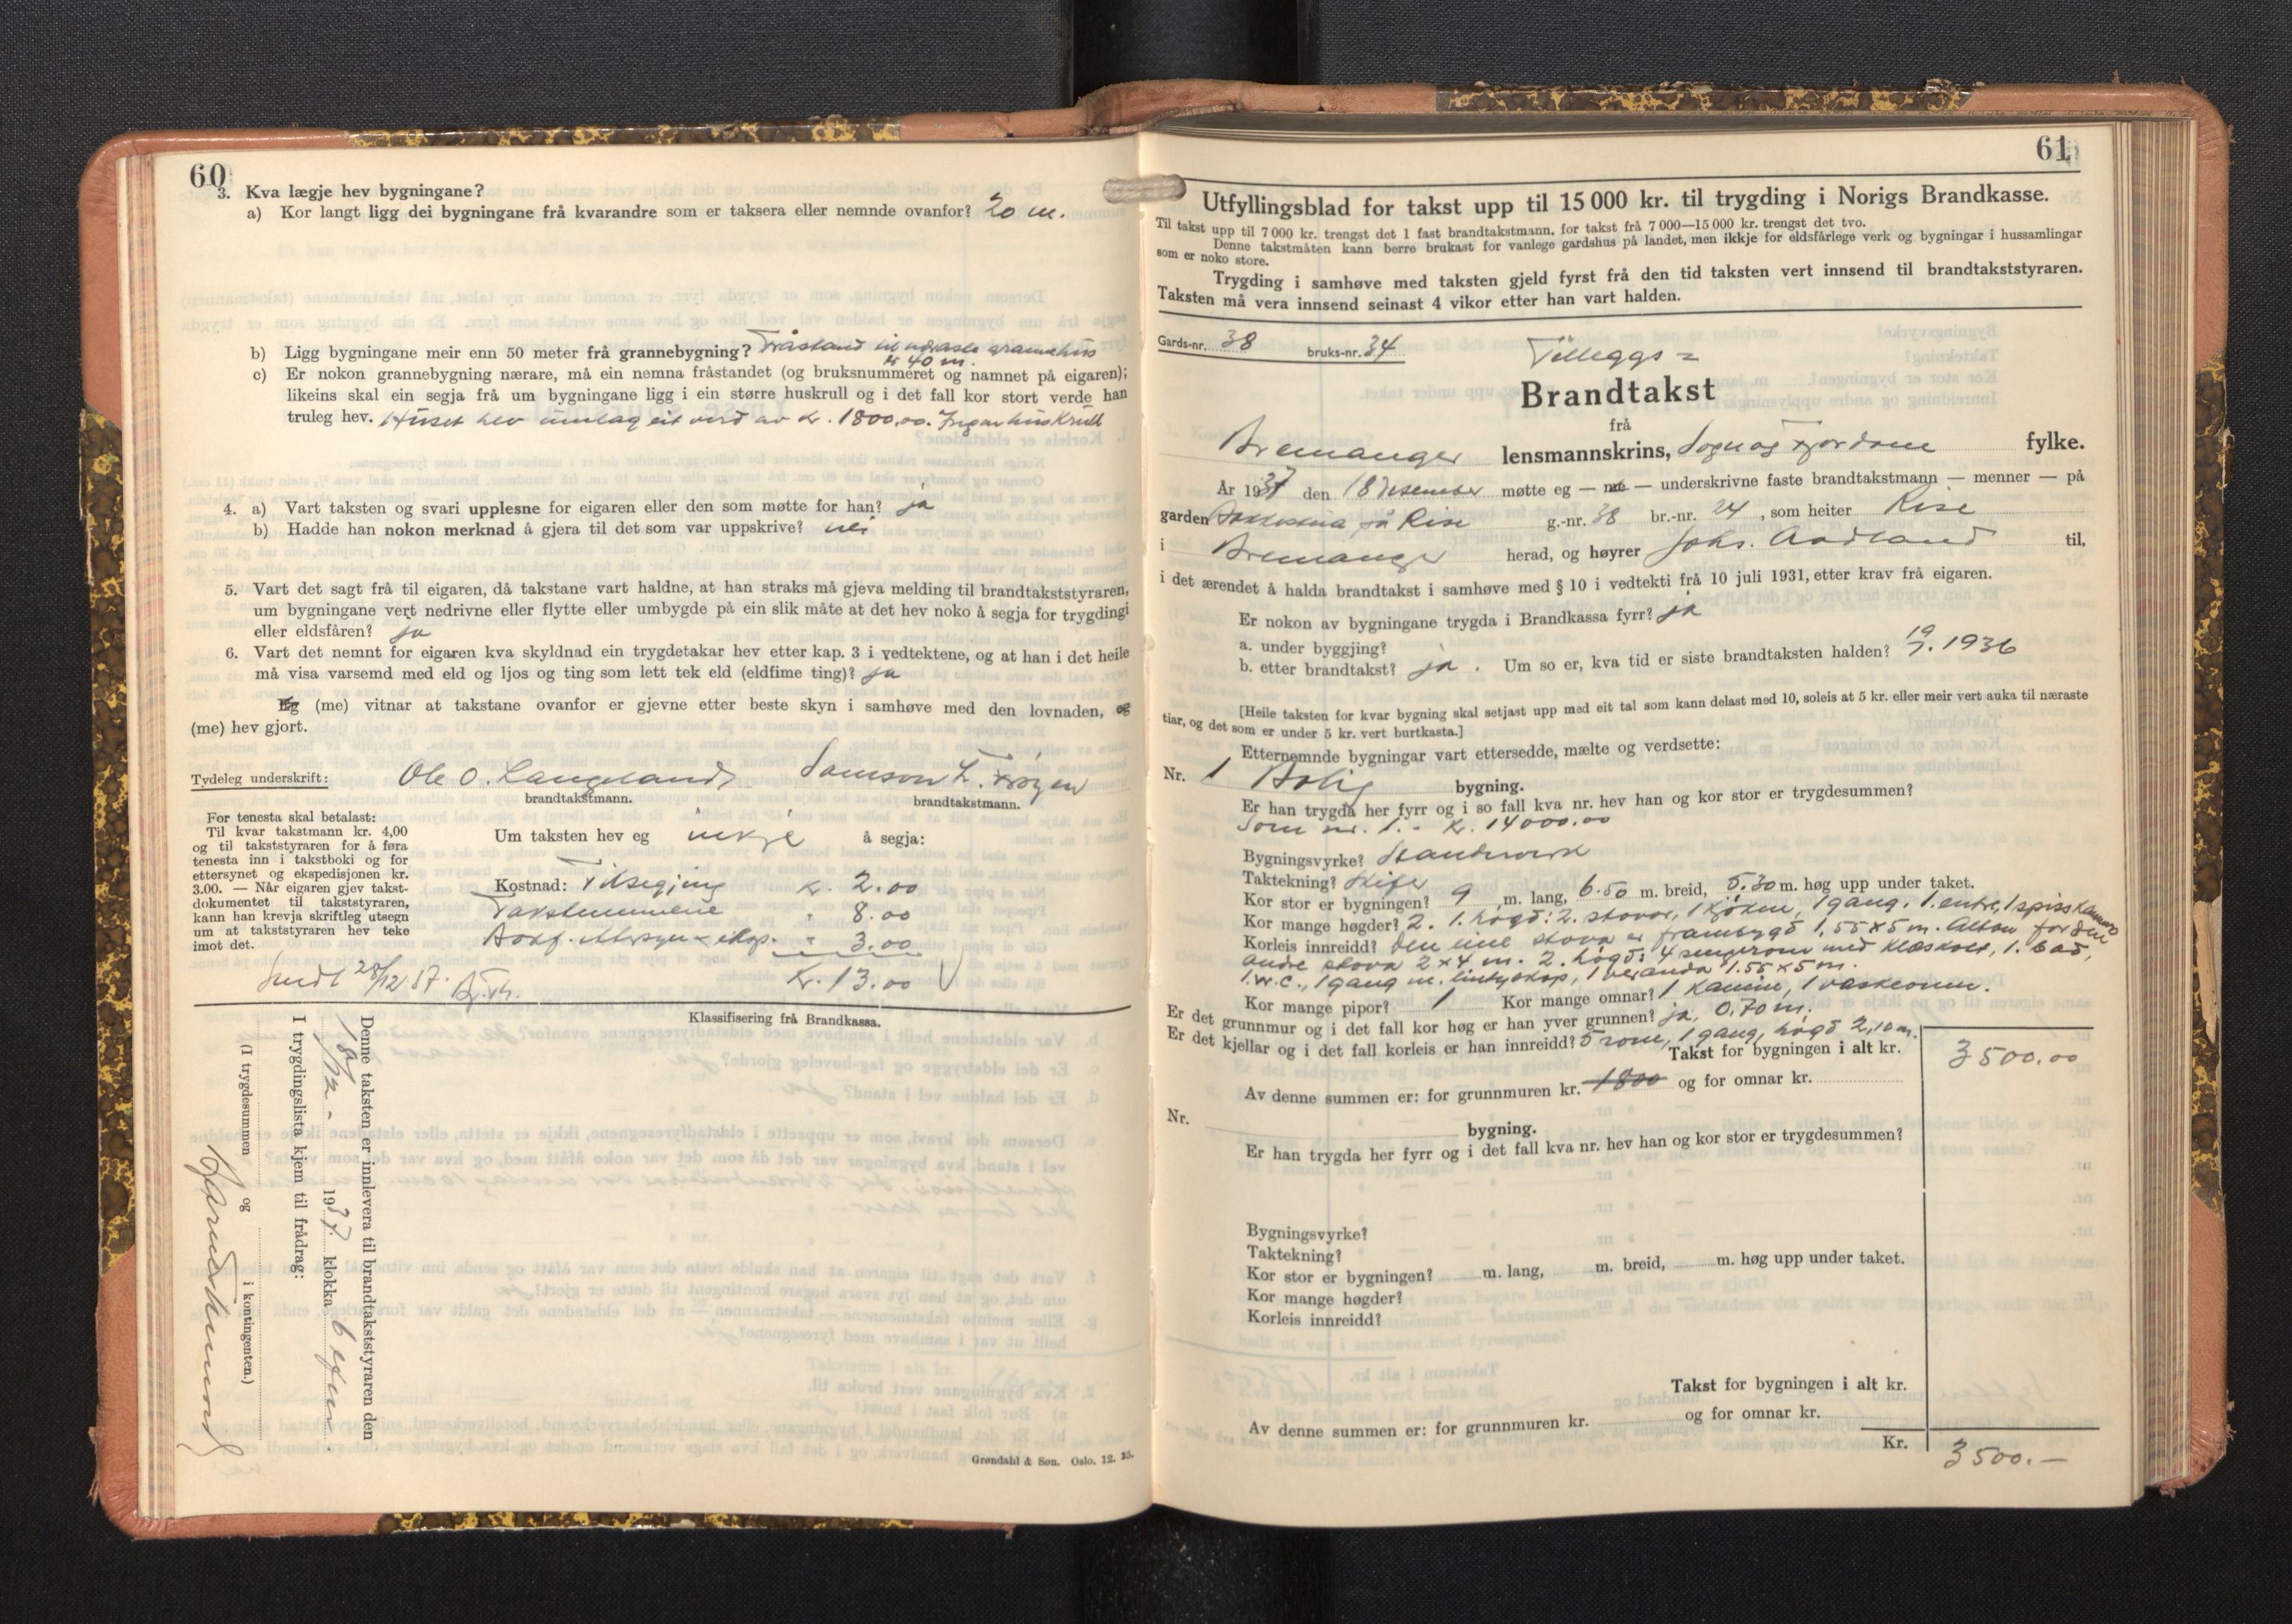 60
3. Kva lægje hev bygningane?
a) Kor langt ligg dei bygningane frå kvarandre som er taksera eller nemnde ovanfor? 20 m.
b) Ligg bygningane meir enn 50 meter frå grannebygning? Fråstand til næraste grannehus
er 40 m.
c) Er nokon grannebygning nærare, må ein nemna fråstandet (og bruksnummeret og namnet på eigaren);
likeins skal ein segja frå um bygningane ligg i ein større huskrull og i det fall kor stort verde han
truleg hev. Huset hev umlag eit verd av kr. 1800,00. Ingen huskrull
4. a) Vart taksten og svari upplesne for eigaren eller den som møtte for han? ja
b) Hadde han nokon merknad å gjera til det som var uppskrive? nei
5. Vart det sagt frå til eigaren, då takstane vart haldne, at han straks må gjeva melding til brandtakststyraren,
um bygningane vert nedrivne eller flytte eller umbygde på ein slik måte at det hev noko å segja for trygdingi
eller eldsfåren? ja
6. Vart det nemnt for eigaren kva skyldnad ein trygdetakar hev etter kap. 3 i vedtektene, og at han i det heile
må visa varsemd med eld og ljos og ting som lett tek eld (eldfime ting)? ja
Eg (me) vitnar at takstane ovanfor er gjevne etter beste skyn i samhøve med den lovnaden, eg
(me) hev gjort.
Tydeleg underskrift: Ole O. Langeland Samson L.
brandtakstmann. brandtakstmann.
For tenesta skal betalast:
Til kvar takstmann kr. 4,00
og til takststyraren for å føra
tenesta inn i takstboki og for
ettersynet og ekspedisjonen kr.
3.00. — Når eigaren gjev takst-
dokumentet til takststyraren,
kann han krevja skriftleg utsegn
um at takststyraren hev teke
imot det.
Um taksten hev eg inkje å segja:
Kostnad: Tilsegjing kr. 2.00
Takstmennene " 8.00
" 3.00
Kr. 13.00
Sendt 28/12 37.
Klassifisering frå Brandkassa.
Denne taksten er innlevera til brandtakststyraren den
18/12 - 1937. klokka 6 efm.
I trygdingslista kjem til frådrag:
(I trygdesummen og i kontingenten.)
Grøndahl & Søn. Oslo. 12. 35.
61
Utfyllingsblad for takst upp til 15 000 kr. til trygding i Norigs Brandkasse.
Til takst upp til 7 000 kr. trengst det 1 fast brandtakstmann, for takst frå 7 000—15 000 kr. trengst det tvo.
Denne takstmåten kann berre brukast for vanlege gardshus på landet, men ikkje for eldsfårlege verk og bygningar i hussamlingar
som er noko store.
Trygding i samhøve med taksten gjeld fyrst frå den tid taksten vert innsend til brandtakststyraren.
Taksten må vera innsend seinast 4 vikor etter han vart halden.
Gards-nr. 38 bruks-nr. 34
Tilleggs =
Brandtakst
frå
Bremanger lensmannskrins, Sogn og Fjordane fylke.
År 1937 den 18 desember møtte eg — me — underskrivne faste brandtakstmann — menner — på
garden på Rise g.-nr. 38 br.-nr. 24, som heiter Rise
i Bremanger herad, og høyrer Johs. Aadland til,
i det ærendet å halda brandtakst i samhøve med § 10 i vedtekti frå 10 juli 1931, etter krav frå eigaren.
Er nokon av bygningane trygda i Brandkassa fyrr? ja
a. under byggjing?
b. etter brandtakst? ja. Um so er, kva tid er siste brandtaksten halden? 19/7. 1936
[Heile taksten for kvar bygning skal setjast upp med eit tal som kann delast med 10, soleis at 5 kr. eller meir vert auka til næraste
tiar, og det som er under 5 kr. vert burtkasta.]
Etternemnde bygningar vart ettersedde, mælte og verdsette:
Nr. 1 Bolig bygning.
Er han trygda her fyrr og i so fall kva nr. hev han og kor stor er trygdesummen?
Som nr. 1. - kr. 14000.00
Bygningsvyrke? Standerverk
Taktekning? Skifer
Kor stor er bygningen? 9 m. lang, 6.50 m. breid, 5.30 m. høg upp under taket.
Kor mange høgder? 2. 1. høgd: 2. stover, 1 kjøken, 1 gang, 1. entre, 1 spisskammer
Korleis innreidd? Den eine stova er frambygd 1,55 x 5 m. Altan for den
andre stova 2 x 4 m. 2. høgd: 4 sengerom med klæskott, 1. bad,
1. W.C., 1 gang m. lintyskap, 1 veranda 1.55 x 5 m.
Kor mange pipor? 1 Kor mange omnar? 1 kamin, 1 vaskeomn.
Er det grunnmur og i det fall kor høg er han yver grunnen? ja, 0.70 m.
Er det kjellar og i det fall korleis er han innreidd? 5 rom, 1 gang, høgd 2,10 m.
Takst for bygningen i alt kr. 3500.00
Av denne summen er: for grunnmuren kr. 1800 og for omnar kr.
Nr. bygning.
Er han trygda her fyrr og i det fall kva nr. hev han og kor stor er trygdesummen?
Bygningsvyrke?
Taktekning?
Kor stor er bygningen? m. lang, m. breid, m. høg upp under taket.
Kor mange høgder?
Korleis innreidd?
Takst for bygningen i alt kr.
Av denne summen er: for grunnmuren kr. og for omnar kr.
Kr. 3500.—